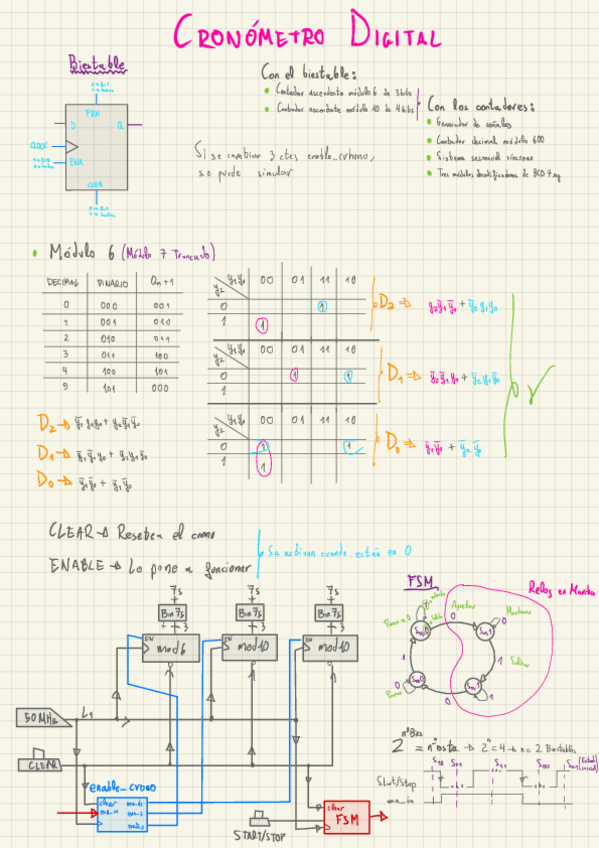 CRONÓMETRO DIGITAL
Biestable
PRN
D
Q
CLOCK
ENA
Con el biestable:
• Contador ascendente módulo 6 de 3 bits
• Contador ascendente módulo 10 de 4 bits
Con los contadores:
• Generador de señales
• Contador decimal módulo 600
• Sistema secuencial síncrono
• Tres módulos decodificadores de BCD 7seg
Si se cambian 3 ctes enable_crono,
se puede simular
• Módulo 6 (Módulo 7 Truncado)
DECIMAL BINARIO Qn+1
0 000 001
1 001 010
2 010 011
3 011 100
4 100 101
5 101 000
y₂ y₁y₀ 00 01 11 10
0 1
1 1
D₂ ⇒ y₂ȳ₁ȳ₀ + ȳ₂y₁y₀
y₂ y₁y₀ 00 01 11 10
0 1 1
1
D₁ ⇒ ȳ₂ȳ₁y₀ + ȳ₂y₁ȳ₀
y₂ y₁y₀ 00 01 11 10
0 1 1
1 1
D₀ ⇒ ȳ₁ȳ₀ + ȳ₂ȳ₀
D₂ →
D₁ →
D₀ →
CLEAR → Resetea el crono
ENABLE → Lo pone a funcionar
Se activan cuando están en 0
7s 7s 7s
Bin7s Bin7s Bin7s
3 3
EN EN EN
mod6 mod10 mod10
50MHz
CLEAR
enable_crono
clear
ena_in
START/STOP
clear
FSM
FSM
Reloj en Marcha
Apretar
Mantener
Soltar
0 0 1 1 0 0 1
2 nºBits = nºesta → 2ⁿ = 4 → n = 2 Biestables
S10 S11
Start/Stop
ena_in